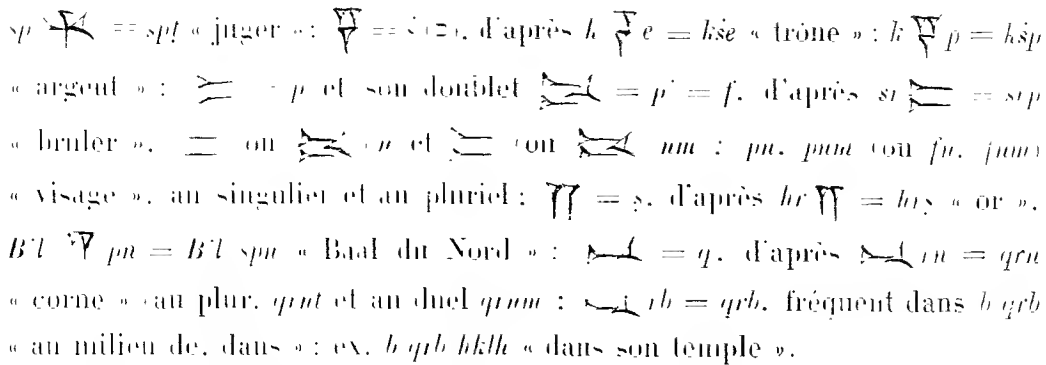 sp 𐎉 = spṭ « juger » : 𐎒 = ś (?), d'après k 𐎒 e = kśe « trône » : k 𐎒 p = kśp
« argent » : 𐎔 = p et son doublet = p' = f, d'après śr 𐎔 = śrp
« bruler », 𐎔 ou n et 𐎔 (ou nm : pn, pnm (ou fn, fnm)
« visage », au singulier et au pluriel : 𐎕 = ṣ, d'après ḫr 𐎕 = ḫrṣ « or »,
B'l 𐎕 pn = B'l ṣpn « Baal du Nord » : 𐎖 = q, d'après 𐎖 rn = qrn
« corne » (au plur. qrnt et au duel qrnm : 𐎖 rb = qrb, fréquent dans b qrb
« au milieu de, dans » : ex. b qrb hklh « dans son temple ».